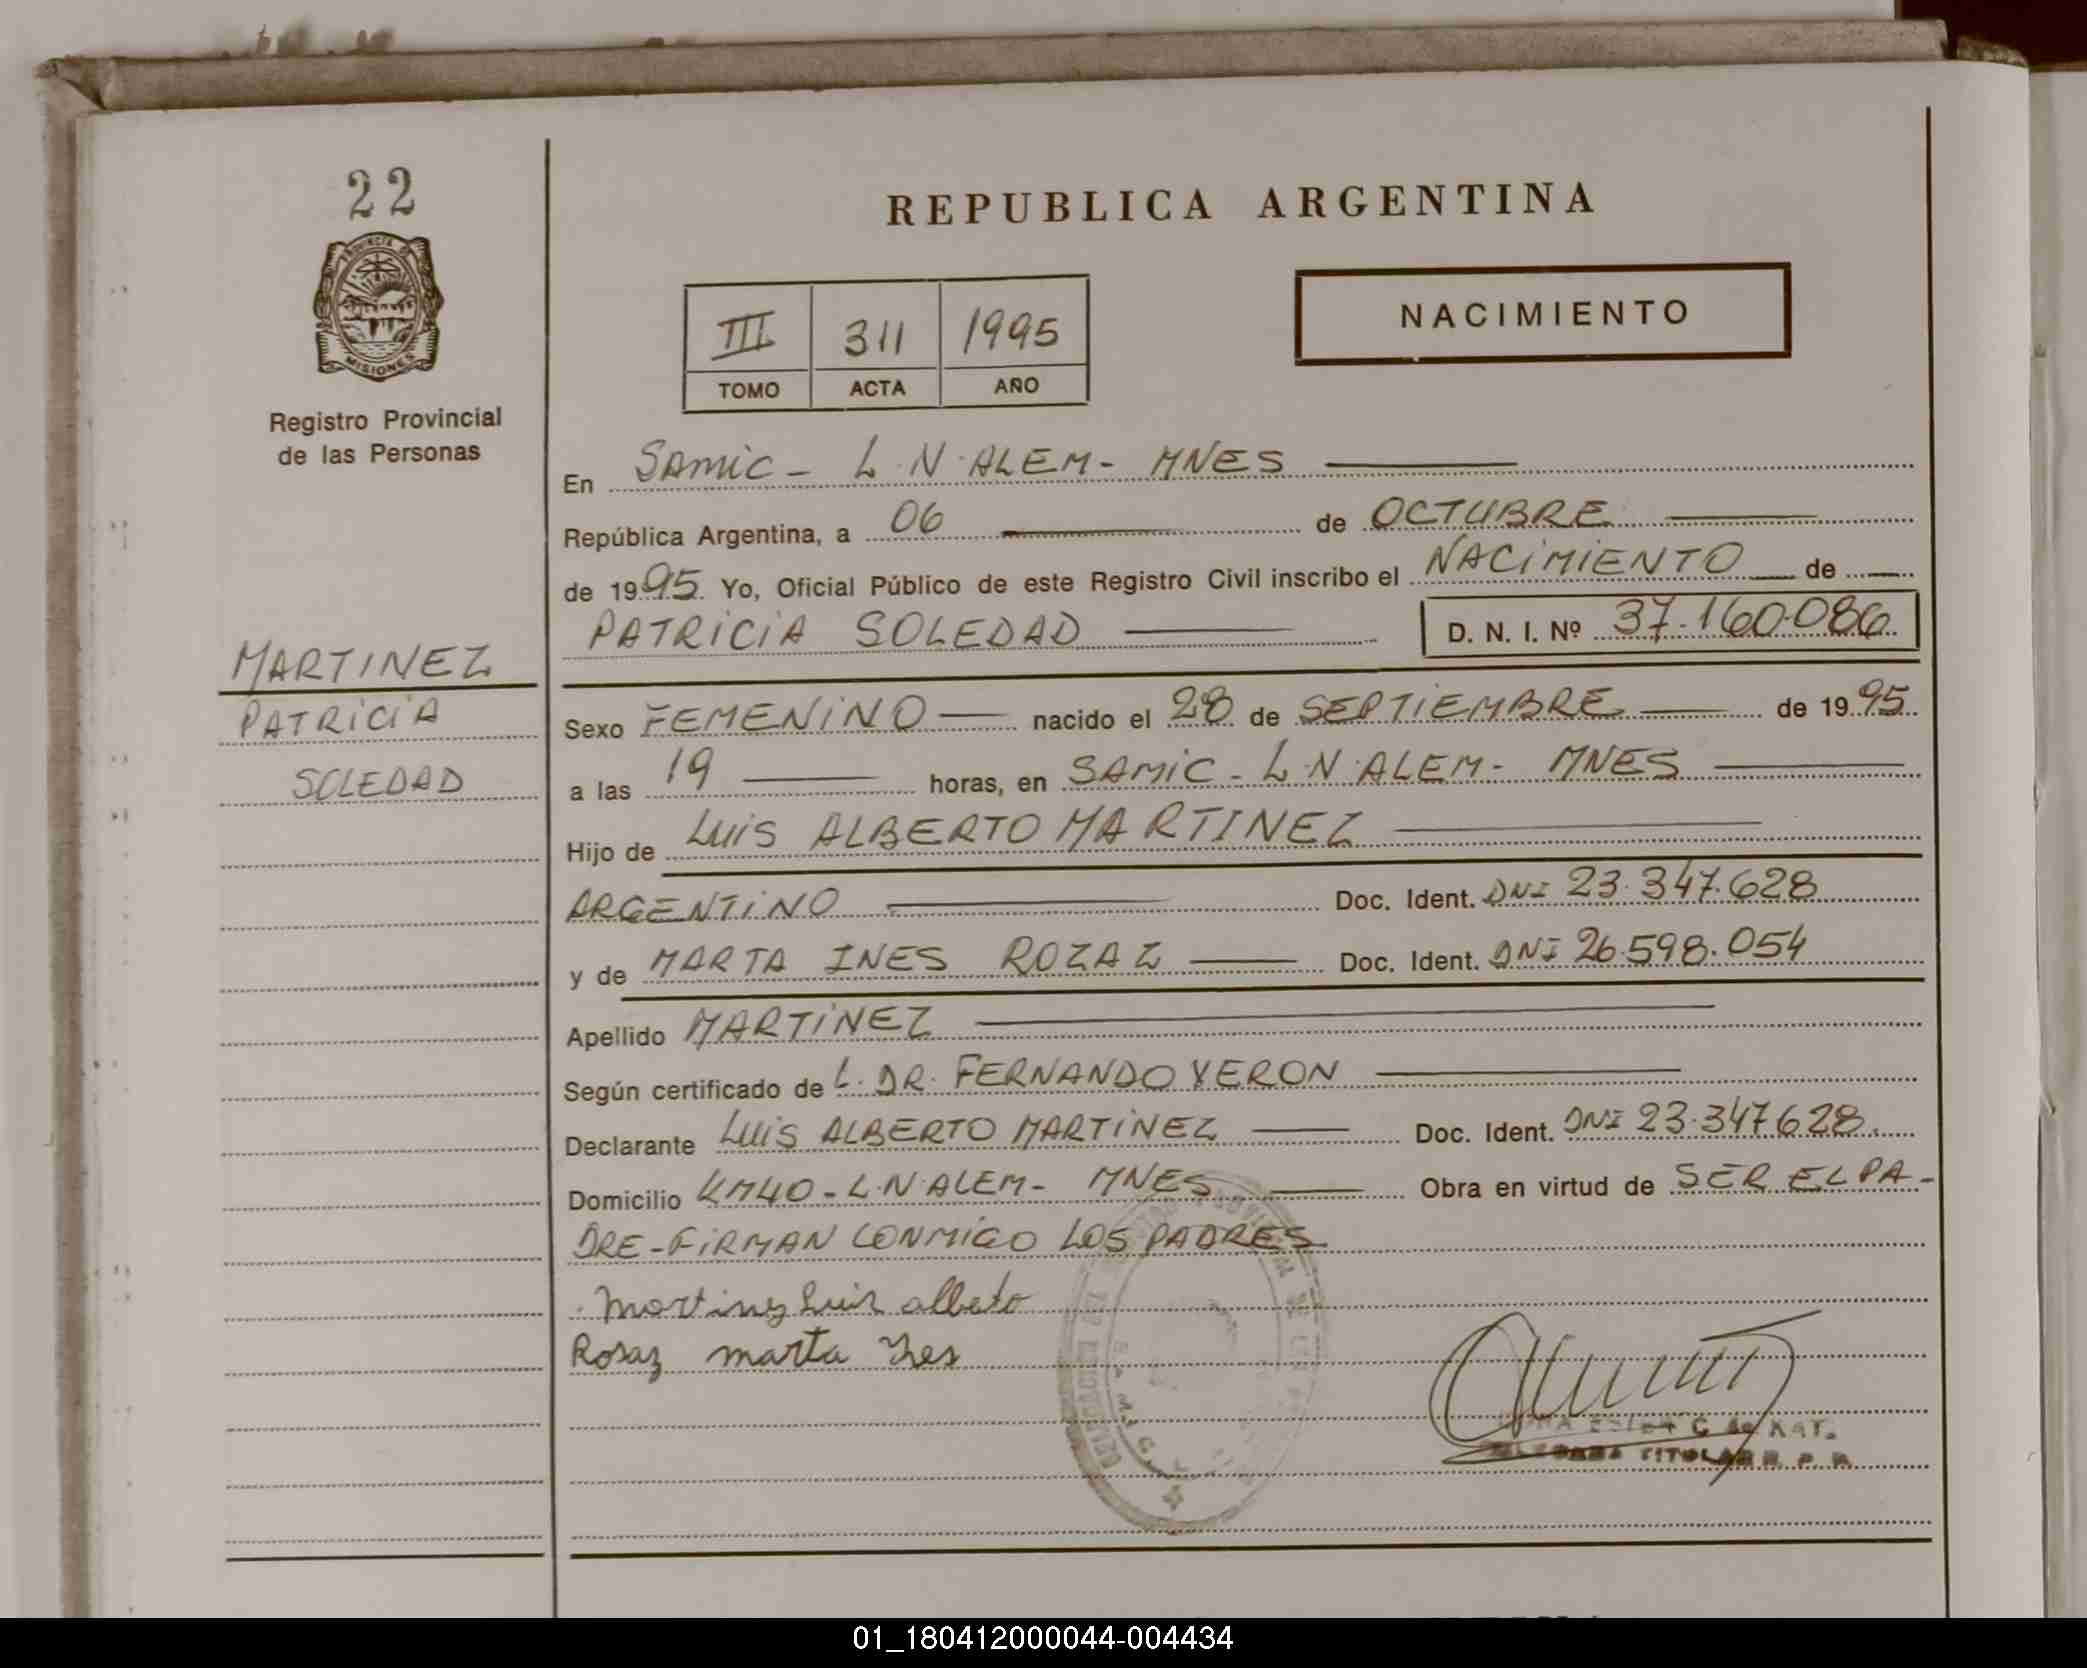 22
PROVINCIA DE
MISIONES
Registro Provincial
de las Personas
MARTINEZ
PATRICIA
SOLEDAD
REPUBLICA ARGENTINA
III 311 1995
TOMO ACTA AÑO
NACIMIENTO
En SAMIC - L.N.ALEM - MNES
República Argentina, a 06 de OCTUBRE
de 1995. Yo, Oficial Público de este Registro Civil inscribo el NACIMIENTO de
PATRICIA SOLEDAD D. N. I. Nº 37.160.086
Sexo FEMENINO nacido el 28 de SEPTIEMBRE de 1995
a las 19 horas, en SAMIC - L.N.ALEM - MNES
Hijo de LUIS ALBERTO MARTINEZ
ARGENTINO Doc. Ident. DNI 23.347.628
y de MARTA INES ROZAZ Doc. Ident. DNI 26.598.054
Apellido MARTINEZ
Según certificado de L. DR. FERNANDO VERON
Declarante LUIS ALBERTO MARTINEZ Doc. Ident. DNI 23.347628.
Domicilio KM40 - L.N.ALEM - MNES Obra en virtud de SER EL PA-
DRE - FIRMAN CONMIGO LOS PADRES
Martinez Luis alberto
Rosaz marta Ines
C de KAT.
TITULAR R. P. P.
01_180412000044-004434